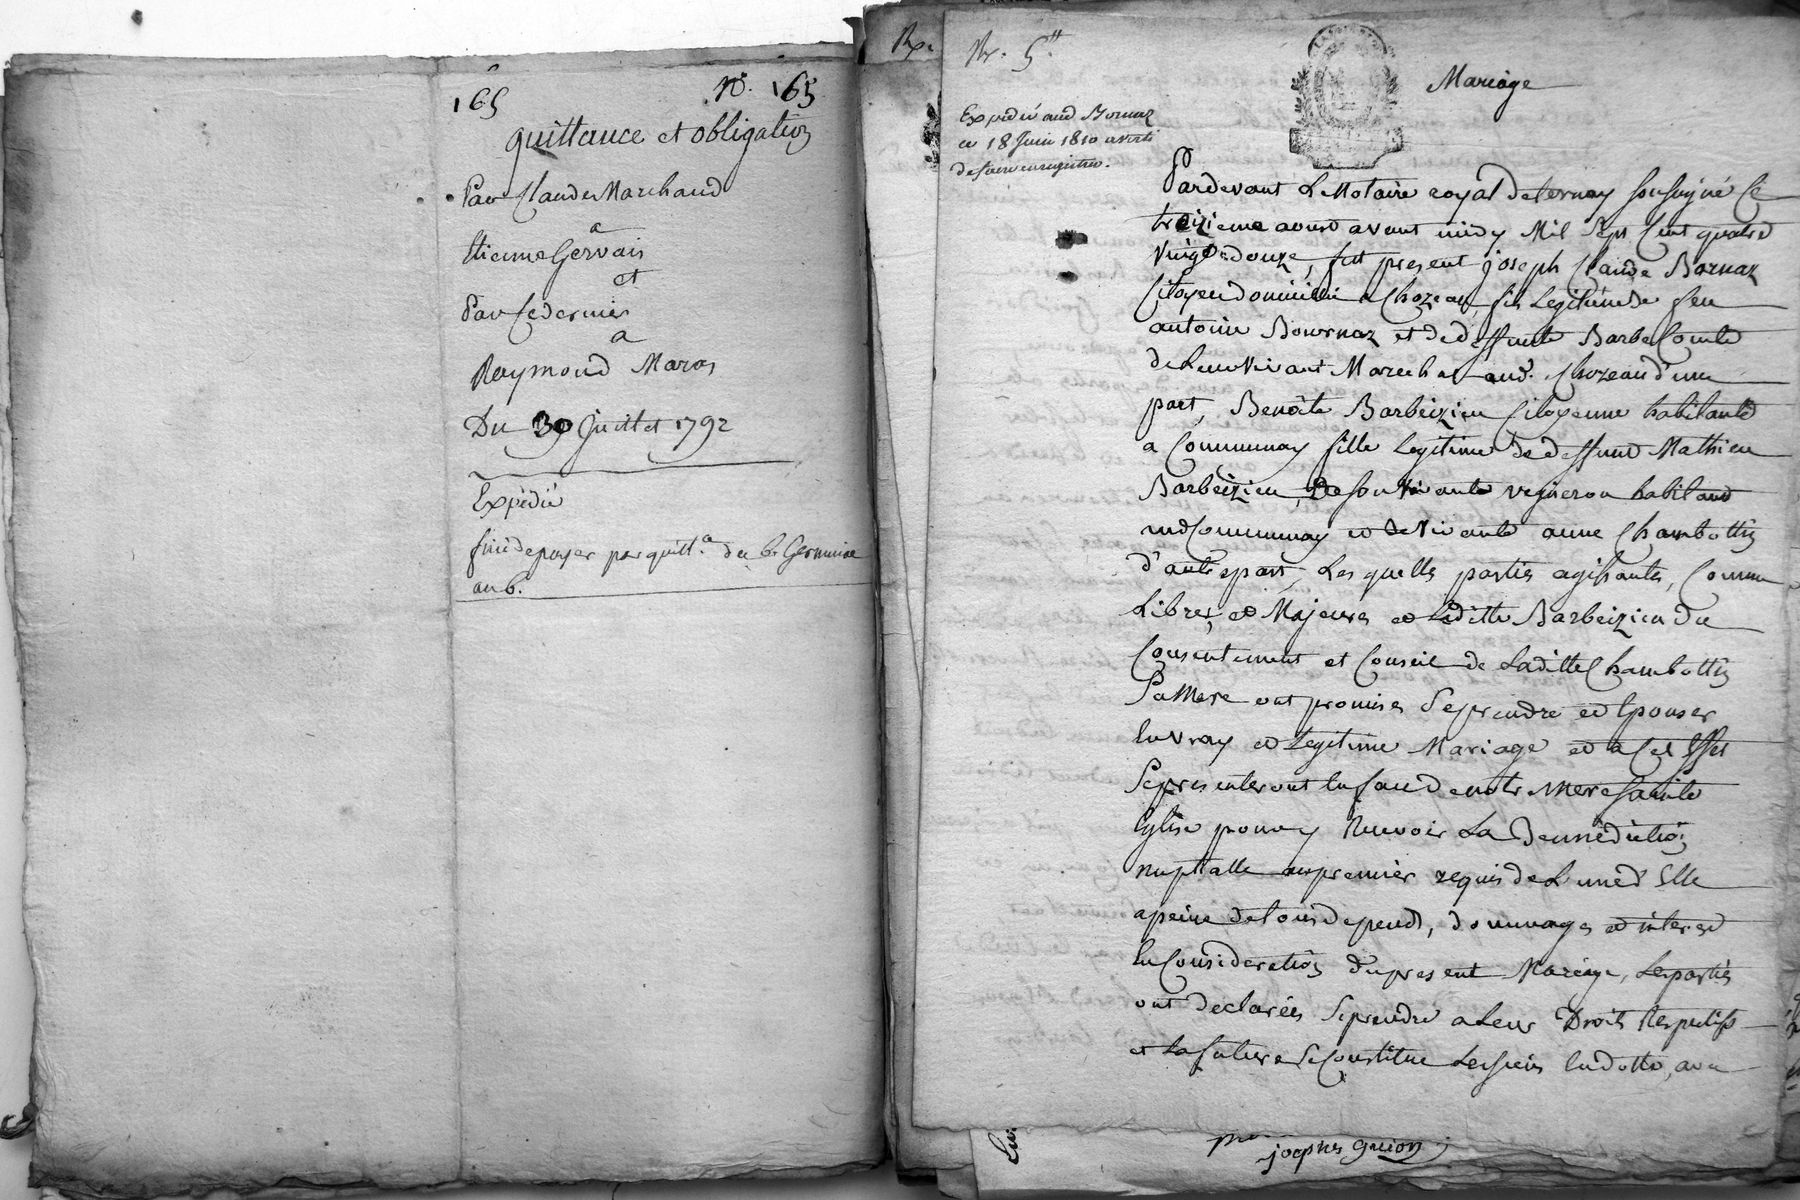 165 N°. 165
quittance et obligation
Par Claude Marchand
a
Etienne Gervais
et
Par Ce dernier
a
Raymond Maras
Du 30 Juillet 1792
Expédié
fini de payer par quitt.ce du 6. Germinal
an 6.
Rx.
Rx. 5tt
Mariage
Expedié aud Bornaz
ce 18 Juin 1810 averti
de faire enregistrer.
Pardevant Le Notaire royal de ternay soussigné Ce
treizieme aoust avant midy Mil Sept Cent quatre
Vingt douze, fut present joseph Claude Bornaz
Citoyen domicilié a Chozeau, fils Legitime de feu
antoine Bournaz et de deffunte Barbe Comte
de Leur vivant Mariés aud. Chozeau d'une
part, Benoite Barbeizieu Citoyenne habitante
a Communay fille Legitime de deffunt Mathieu
Barbeizieu, De Son Vivant vigneron habitant
aud Communay et de vivante anne Chambottin
d'autre part, Les quelles parties agissantes, Comme
Libres, et Majeures et Laditte Barbeizieu du
Consentement et Conseil de Laditte Chambottin
Sa Mere ont promises Se prendre et Epouser
En vray et Legitime Mariage et a Cet Effet
Se presenteront En face de notre Mere Sainte
Eglise pour y Recevoir La Bennediction
nuptialle au premier requis de L'une d'Elle
a peine de tous depends, dommages et interest
En Consideration du present Mariage, Les parties
ont declarées Se prendre a Leur Droits Respectifs
et La future Se Constitue Les siens En dotte, avec
joophs guion